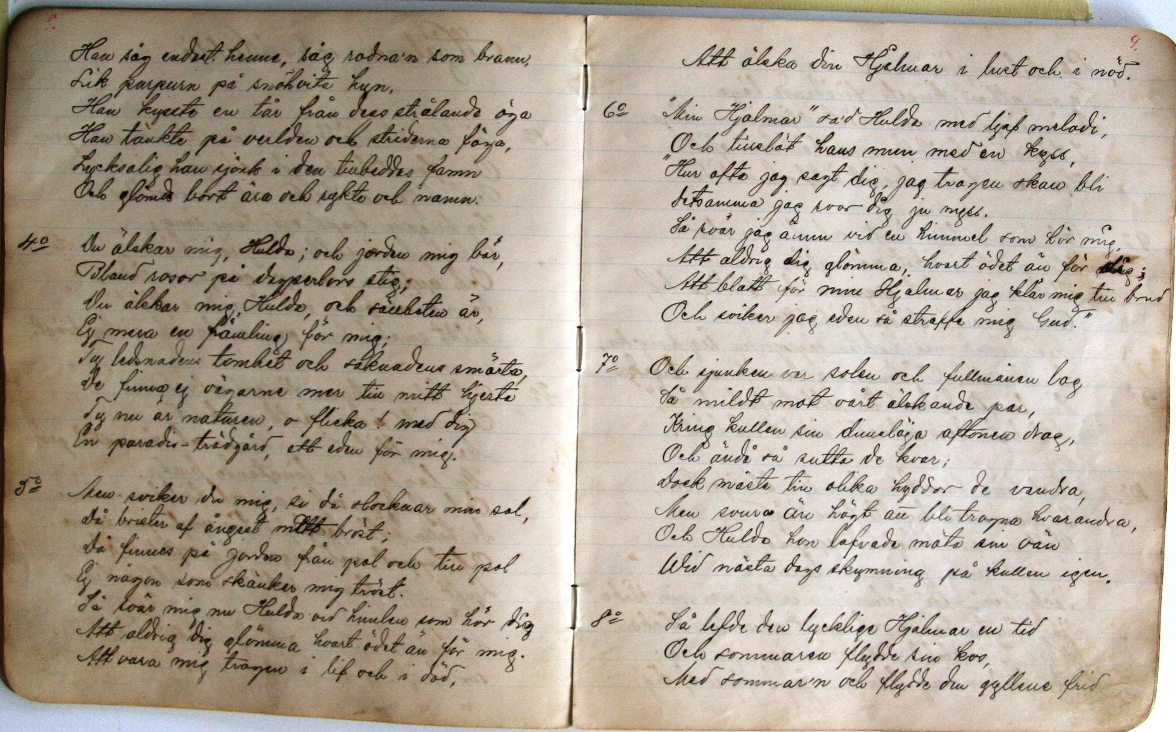 Han såg endast henne, såg rodna'n som brann,
Lik purpurn på snöhvita hyn,
Han kysste en tår från dess strålande öga
Han tänkte på verlden och striderna föga,
Lycksalig han sjönk i den tillbeddas famn
Och glömde bort ära och rykte och namn.
4º Du älskar mig, Hulda; och jorden mig bär,
Bland rosor på dagperlors stig;
Du älskar mig, Hulda, och saligheten är,
Ej mera en främling för mig;
Ty ledsnadens tomhet och saknadens smärta,
De finna ej vägarne mer till mitt hjerta
Ty nu är naturen, o flicka! med dig
En paradis-trädgård, ett eden för mig.
5º Men sviker du mig, si då slocknar min sol,
Då brister af ångest mitt bröst;
Då finnes på jorden från pol och till pol
Ej någon som skänker mig tröst.
Så svär mig nu Hulda vid himlen som hör dig
Att aldrig dig glömma hvart ödet än för mig.
Att vara mig trogen i lif och i död,
9.
Att älska din Hjalmar i lust och i nöd.
6º "Min Hjalmar" sa'd Hulda med ljuf melodi,
Och tillslöt hans mun med en kyss,
"Hur ofta jag sagt dig, jag trogen skall bli
Detsamma jag svor dig ju nyss.
Så svär jag ännu vid en himmel som hör mig,
Att aldrig dig glömma, hvart ödet än för dig;
Att blott för min Hjalmar jag klär mig till brud
Och sviker jag eden så straffe mig Gud."
7º Och sjunken var solen och fullmånen log
Så mildt mot vårt älskande par,
Kring kullen sin dimslöja aftonen drog,
Och ändå så sutto de kvar;
Dock måste till olika hyddor de vandra,
Men svuro än högt att bli trogna hvarandra,
Och Hulda hon lofvade möta sin vän
Wid nästa dags skymning på kullen igen.
8º Så lefde den lycklige Hjalmar en tid
Och sommaren flydde sin kos,
Med sommar'n och flydde den gyllene frid